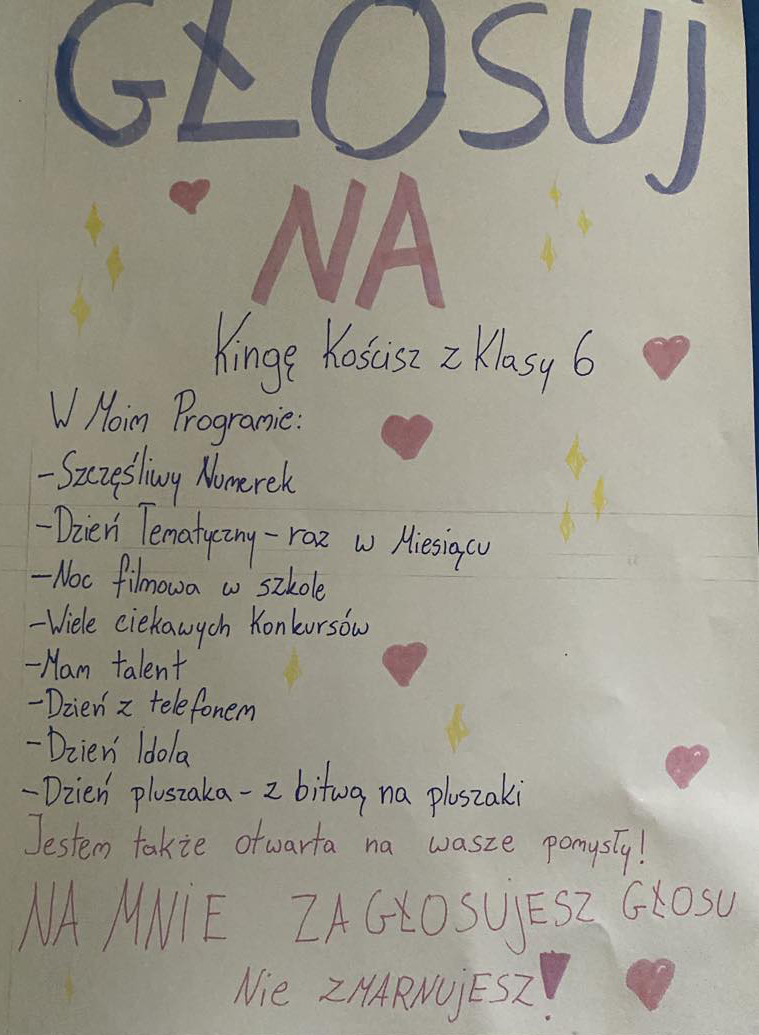 GŁOSUJ
NA
Kingę Kościsz z Klasy 6
W Moim Programie:
-Szczęśliwy Numerek
-Dzień Tematyczny - raz w Miesiącu
-Noc filmowa w szkole
-Wiele ciekawych Konkursów
-Mam talent
-Dzień z telefonem
-Dzień Idola
-Dzień pluszaka - z bitwą na pluszaki
Jestem także otwarta na wasze pomysły!
NA MNIE ZAGŁOSUJESZ GŁOSU
Nie ZMARNUJESZ!